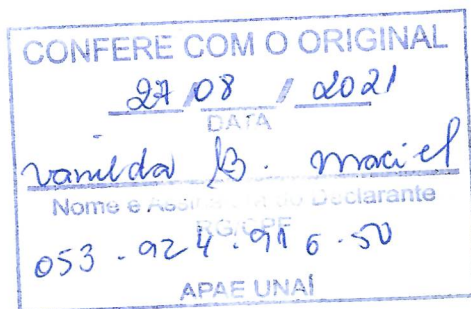 CONFERE COM O ORIGINAL
27/08/2021
DATA
Vanilda B. Maciel
Nome e Assinatura do Declarante
RG/CPF
053.924.916-50
APAE UNAÍ